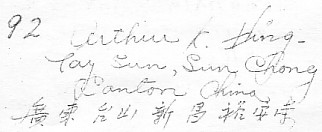 92 Arthur K. Hing-
Tay Sun, Sun Chong
Canton China
廣東台山新昌裕安堂